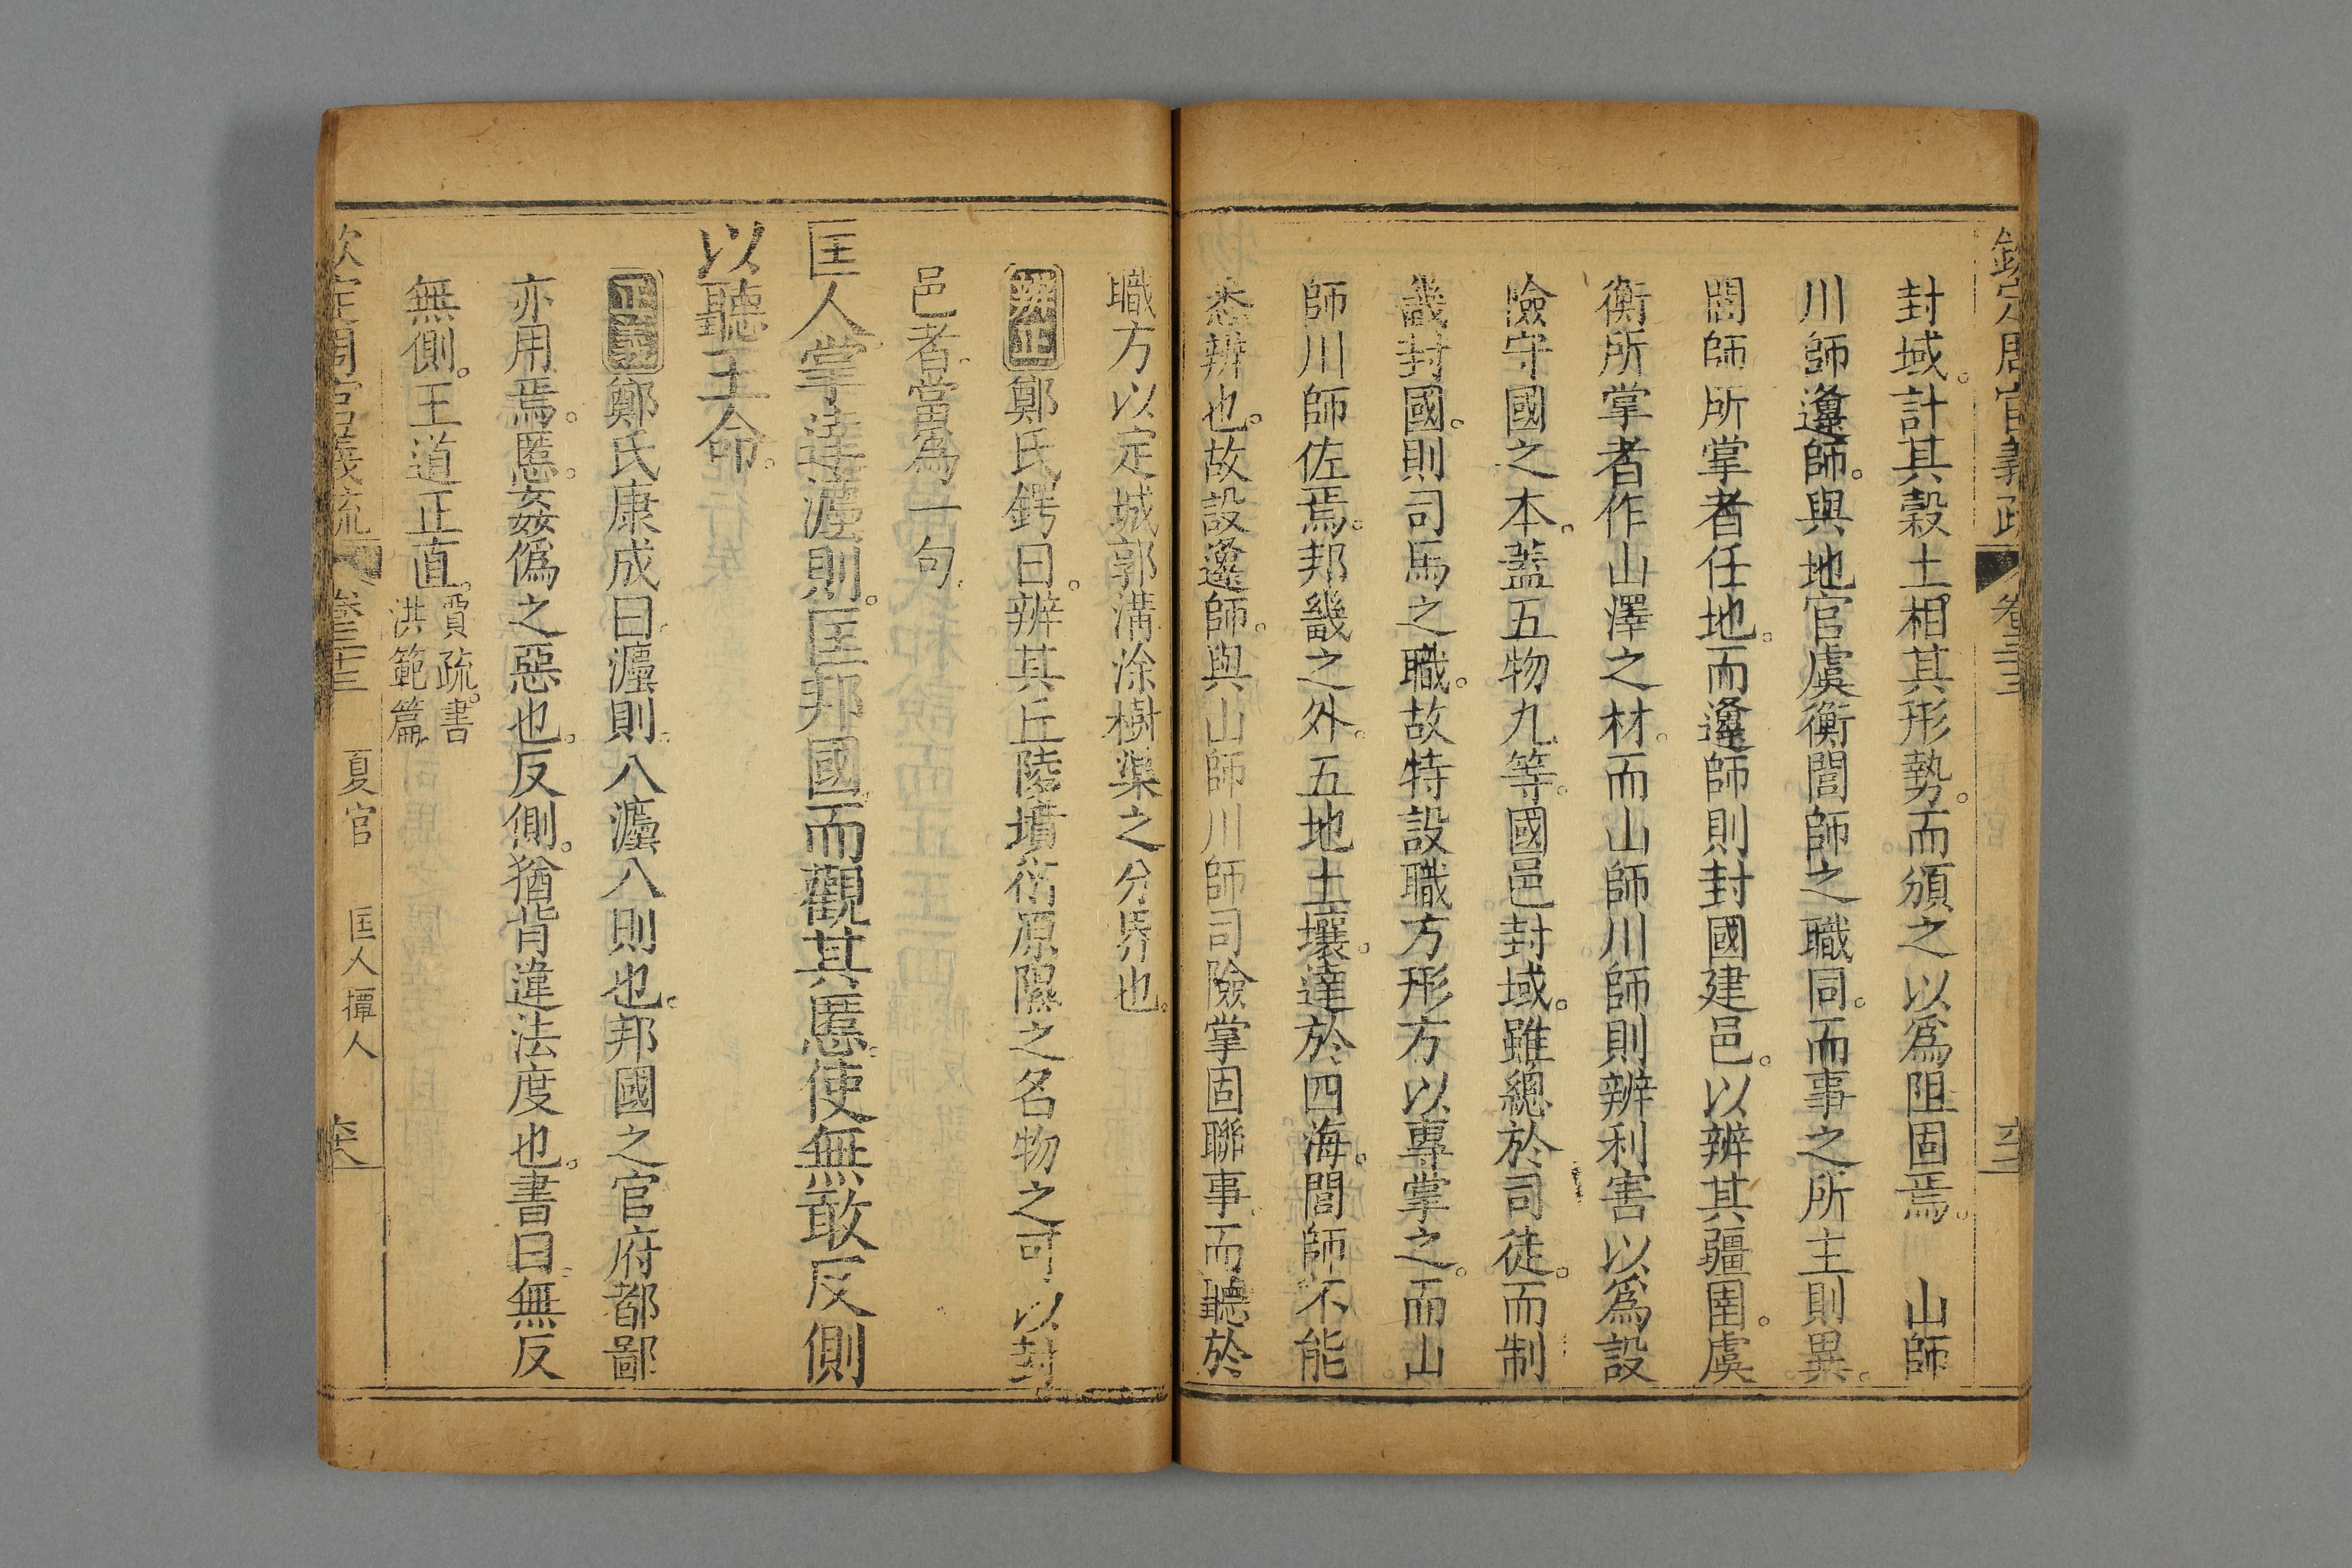 欽定周官義疏 卷三十三
封域。計其穀土。相其形勢。而頒之以爲阻固焉。 山師
川師邍師。與地官虞衡閭師之職同。而事之所主則異。
閭師所掌者任地。而邍師則封國建邑。以辨其疆圉。虞
衡所掌者作山澤之材。而山師川師則辨利害以爲設
險守國之本。蓋五物九等。國邑封域。雖總於司徒。而制
畿封國。則司馬之職。故特設職方形方以專掌之。而山
師川師佐焉。邦畿之外。五地土壤。達於四海。閭師不能
悉辨也。故設邍師。與山師川師司險掌固聯事。而聽於
職方以定城郭溝涂樹渠之分界也。
辨正 鄭氏鍔曰。辨其丘陵墳衍原隰之名物之可以封
邑者。當爲一句。
匡人掌達灋則。匡邦國而觀其慝。使無敢反側
以聽王命。
正義 鄭氏康成曰。灋則。八灋八則也。邦國之官府都鄙
亦用焉。慝。姦偽之惡也。反側。猶背違法度也。書曰。無反
無側。王道正直。賈疏。書
洪範篇。
欽定周官義疏 卷三十三 夏官 匡人 撢人